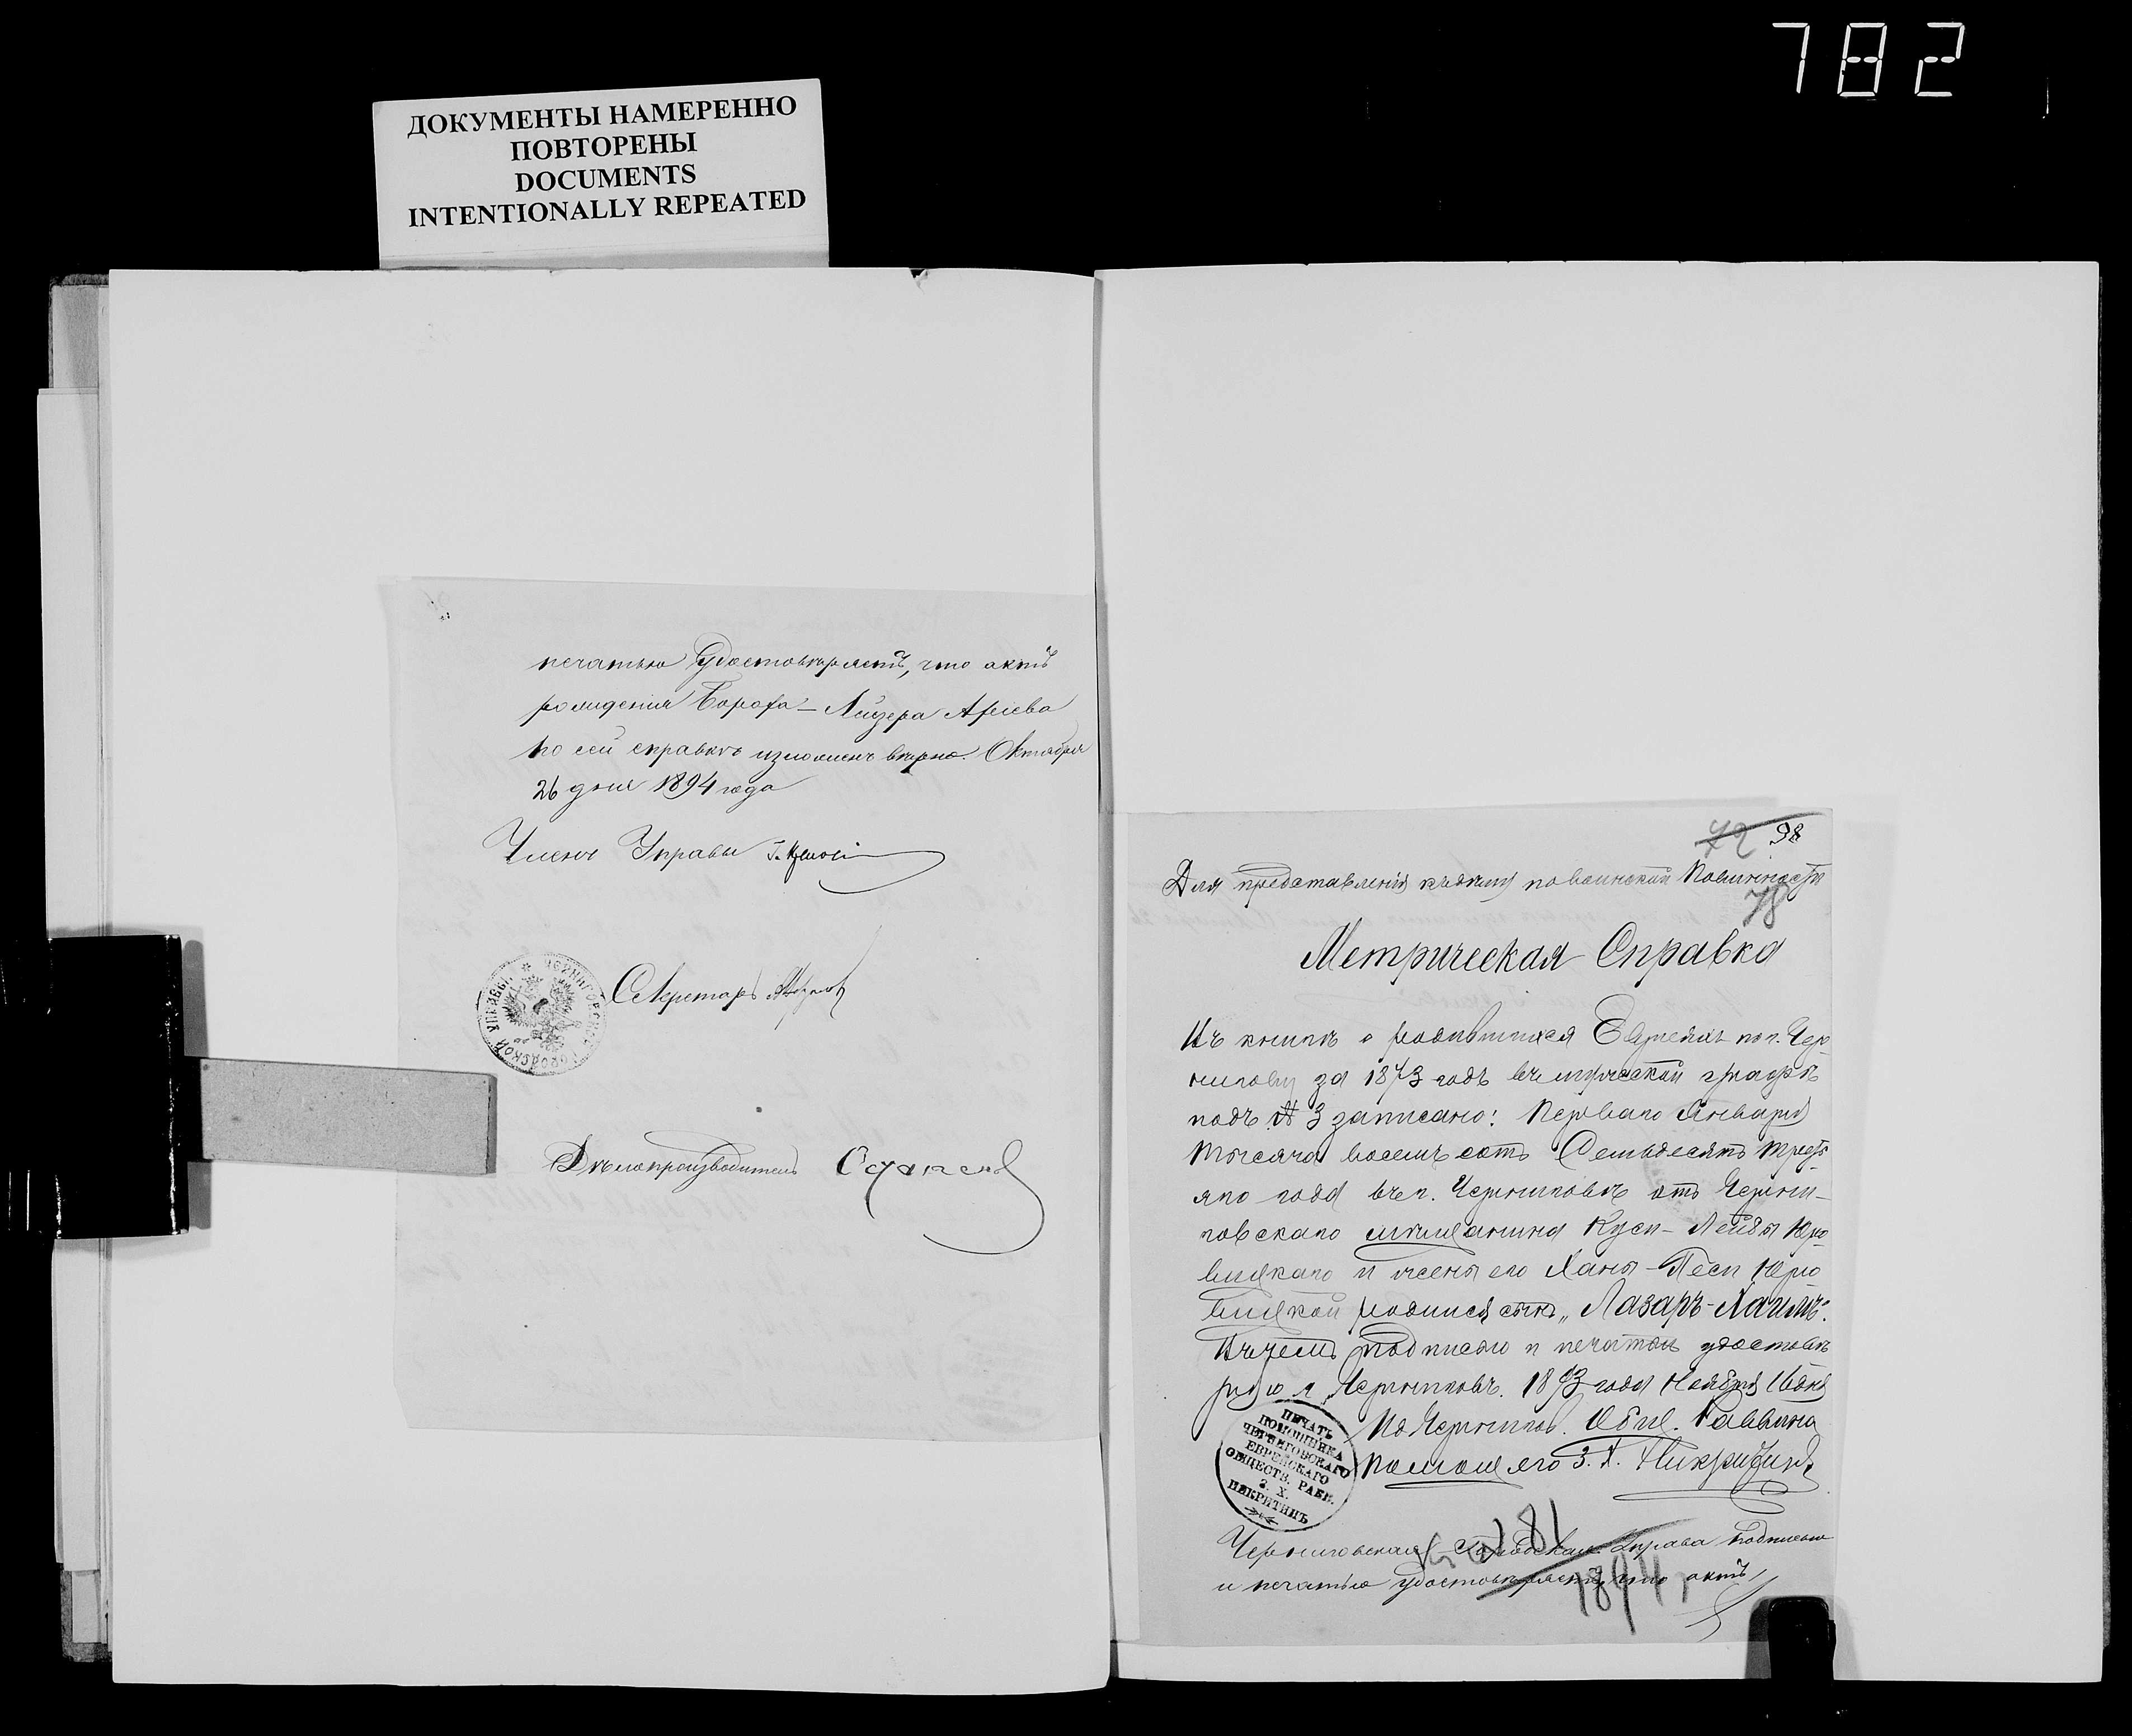 782
ДОКУМЕНТЫ НАМЕРЕННО
ПОВТОРЕНЫ
DOCUMENTS
INTENTIONALLY REPEATED
печатью удостовѣряетъ, что актъ
рожденія Бороха-Лейзера Аріева
по сей справкѣ изложенъ вѣрно. Октября
26 дня 1894 года
Членъ Управы
Секретарь
Дѣлопроизводитель
72 98
Для представленія къ дѣлу по воинской повинности
78
Метрическая Справка
Въ книгѣ о родившихся Евреяхъ по г. Чер-
нигову за 1873 годъ въ мужеской графѣ
подъ № 3 записано: Перваго Января
тысяча восемь сотъ семьдесятъ треть-
яго года въ г. Черниговѣ отъ Черни-
говскаго мѣщанина Куси-Лейбы Юро-
вицкаго и жены его Ханы-Песи Юро
вицкой родился сынъ „Лазаръ-Хаимъ".
Въ чемъ подписью и печатью удостовѣ
ряю г. Черниговъ. 1893 года Ноября 16 дня
За Чернигов. Общ. Раввина
Помощ. его З. Х. Никритинъ
ПЕЧАТЬ
ПОМОЩНИКА
ЧЕРНИГОВСКАГО
ЕВРЕЙСКАГО
ОБЩЕСТВ. РАВВ.
З. Х.
НИКРИТИНЪ
Черниговская Городская Управа подписью
и печатью удостовѣряетъ, что актъ
81
1894